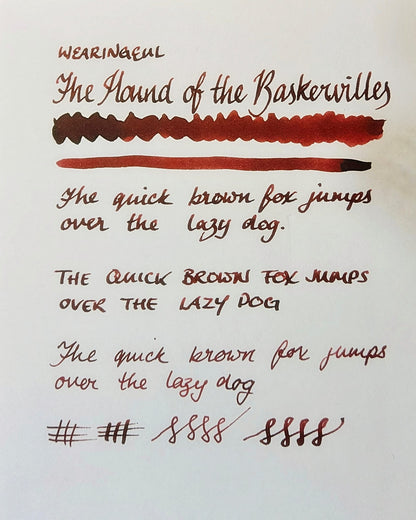 WEARINGEUL
The Hound of the Baskervilles
The quick brown fox jumps
over the lazy dog.
THE QUICK BROWN FOX JUMPS
OVER THE LAZY DOG
The quick brown fox jumps
over the lazy dog